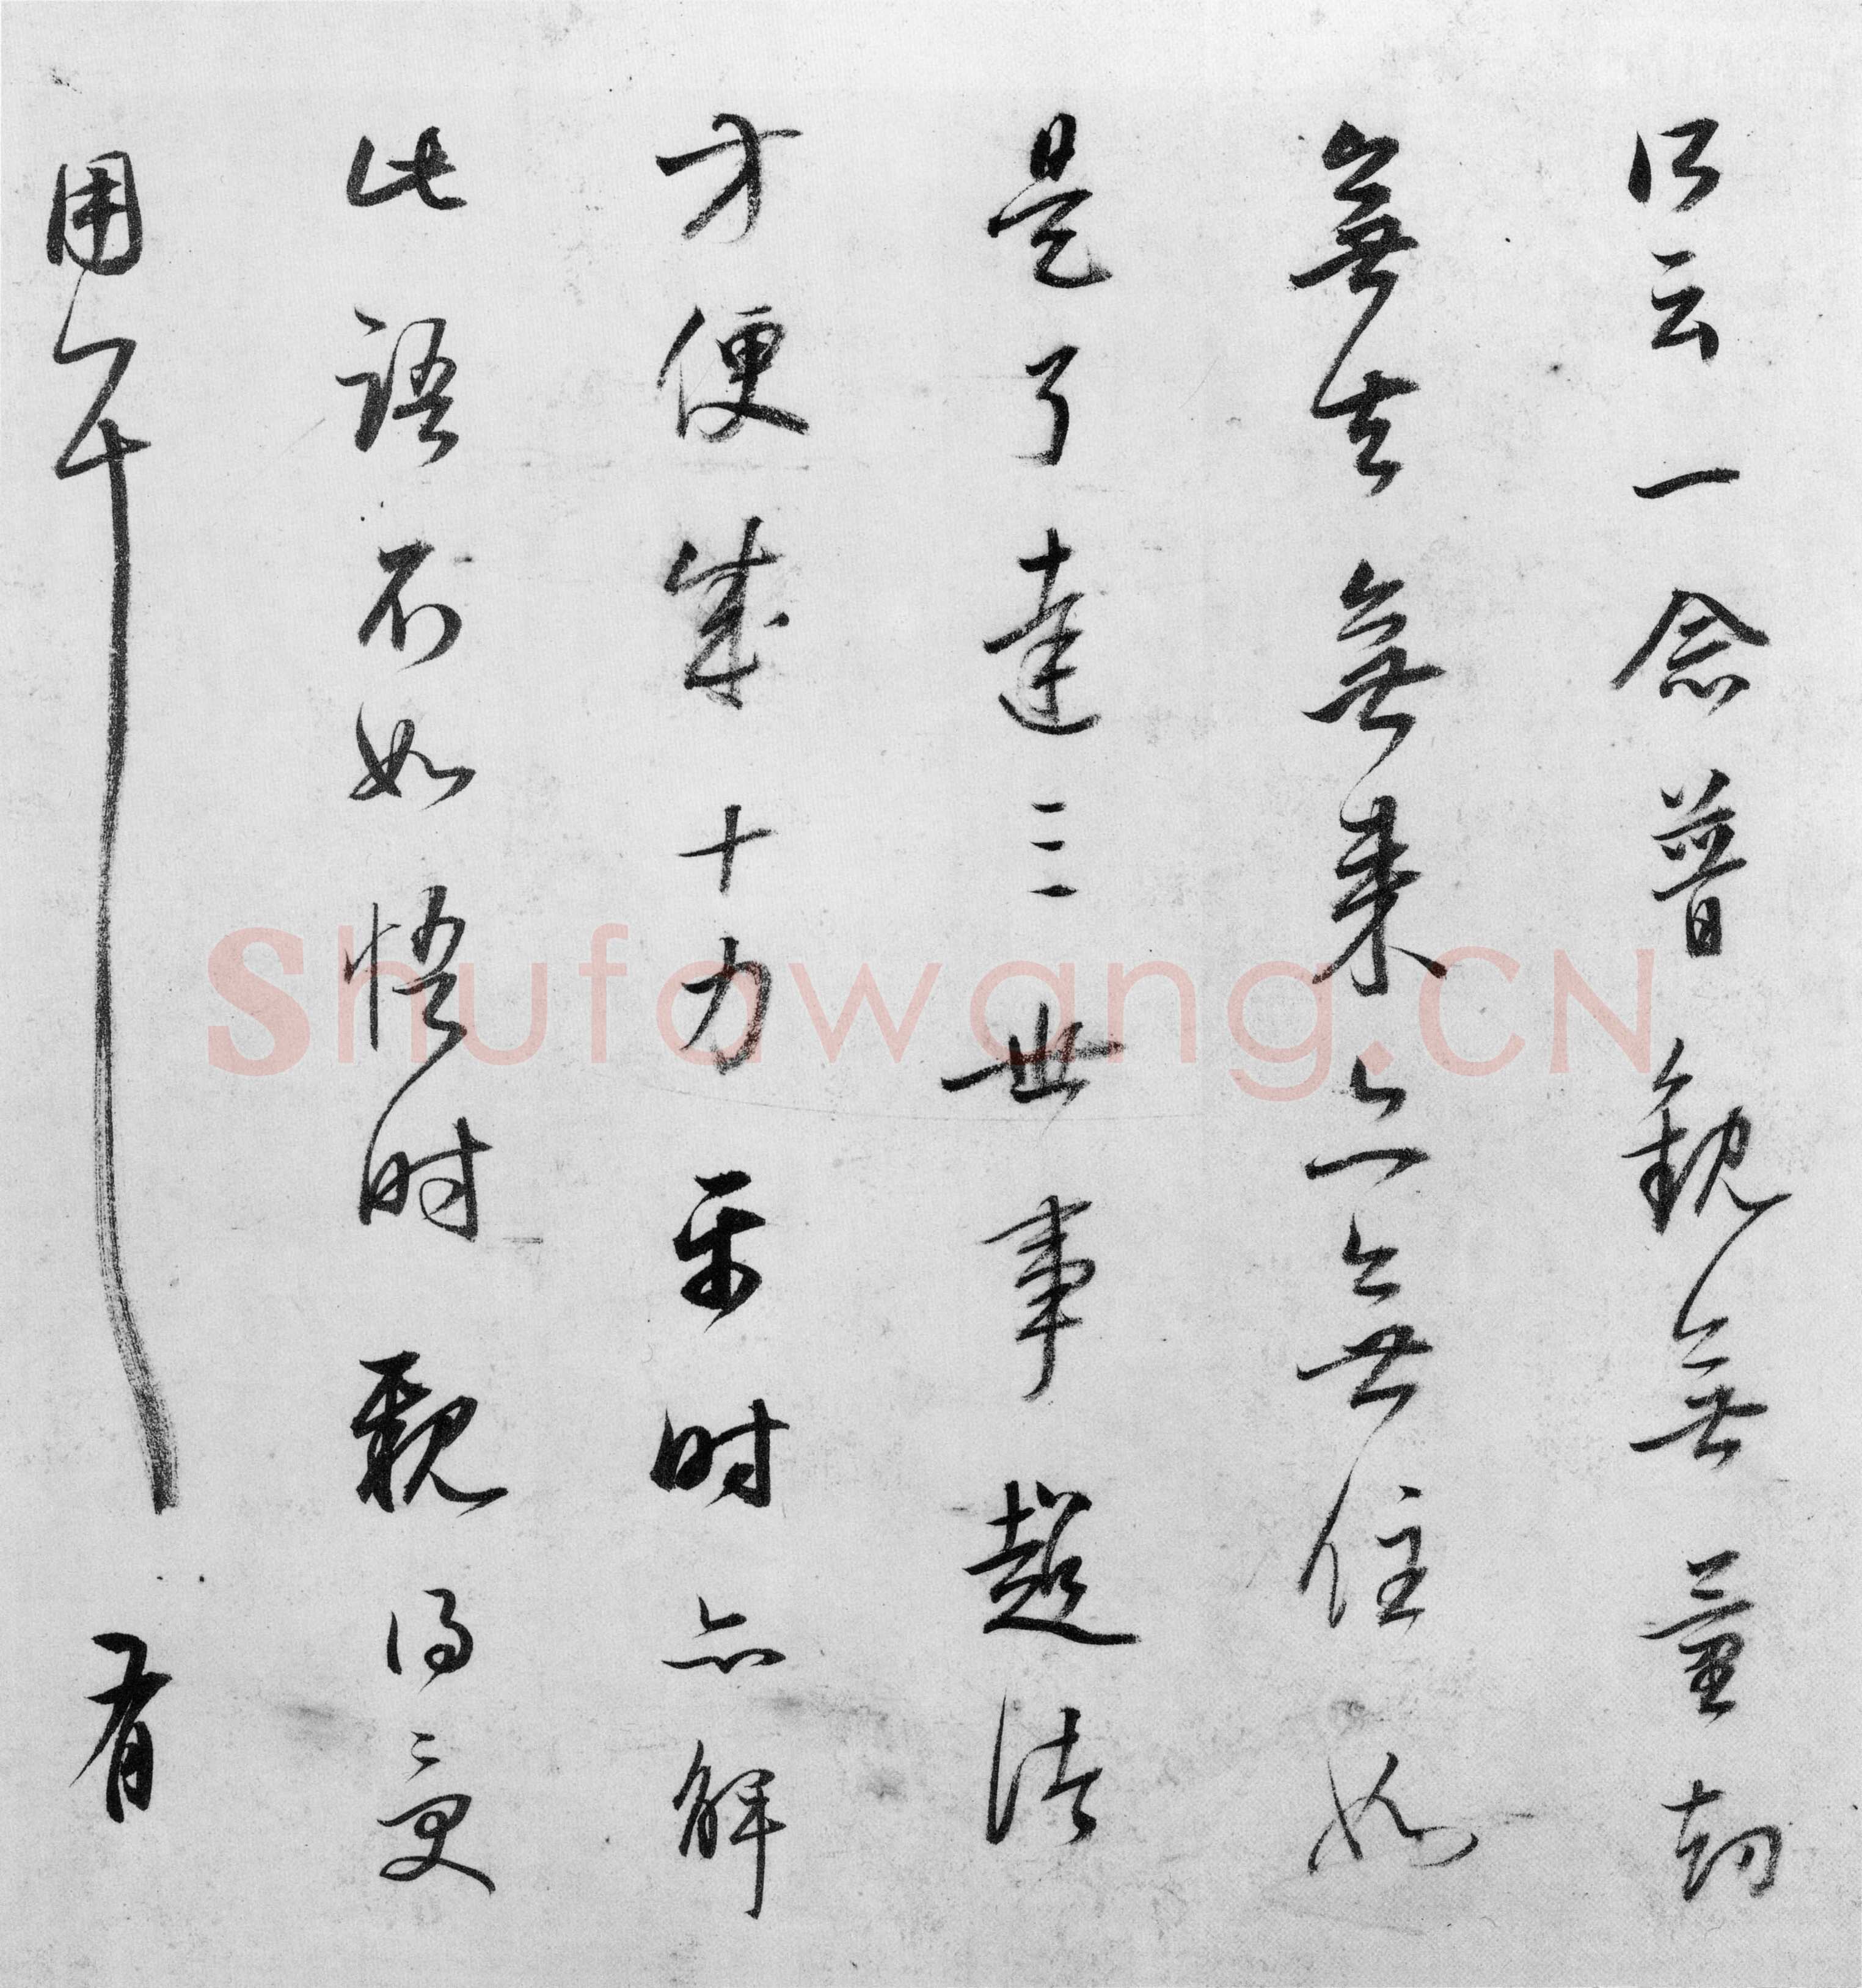 所云一念普觀無量劫
無去無來亦無住如
是了達三世事超諸
方便成十力平時亦解
此語不如悟時親得受
用耳 有
Shufawang.CN